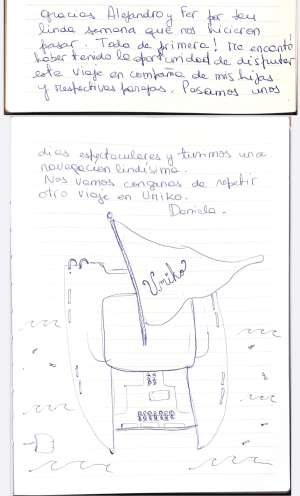 Gracias Alejandro y Fer por esta
linda semana que nos hicieron
pasar. Todo de primera! Me encantó
haber tenido la oportunidad de disfrutar
este viaje en compañía de mis hijas
y respectivas parejas. Pasamos unos
días espectaculares y tuvimos una
navegación lindísima.
Nos vamos con ganas de repetir
otro viaje en Uniko.
Daniela.
Uniko